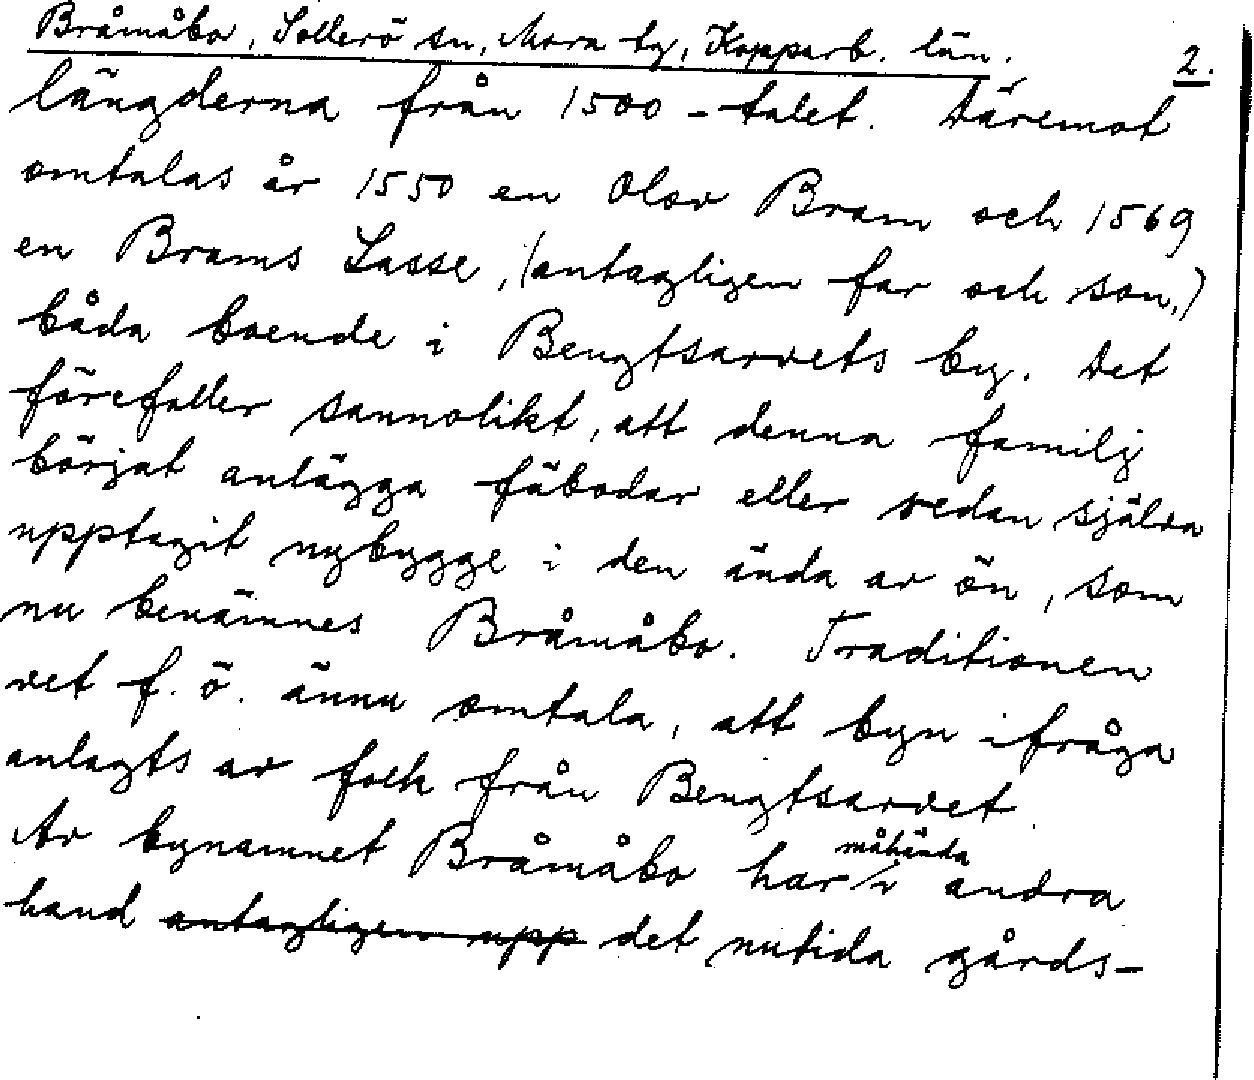 Bråmåbo, Sollerö sn, Mora tg, Kopparb. län. 2.
längderna från 1500-talet. Däremot
omtalas år 1550 en Olov Bram och 1569
en Brams Lasse, (antagligen far och son,)
båda boende i Bengtsarvets by. Det
förefaller sannolikt, att denna familj
börjat anlägga fäbodar eller redan själva
upptagit nybygge i den ända av ön, som
nu benämnes Bråmåbo. Traditionen
vet f. ö. ännu omtala, att byn ifråga
anlagts av folk från Bengtsarvet.
Av bynamnet Bråmåbo har måhända i andra
hand antagligen upp det nutida gårds-